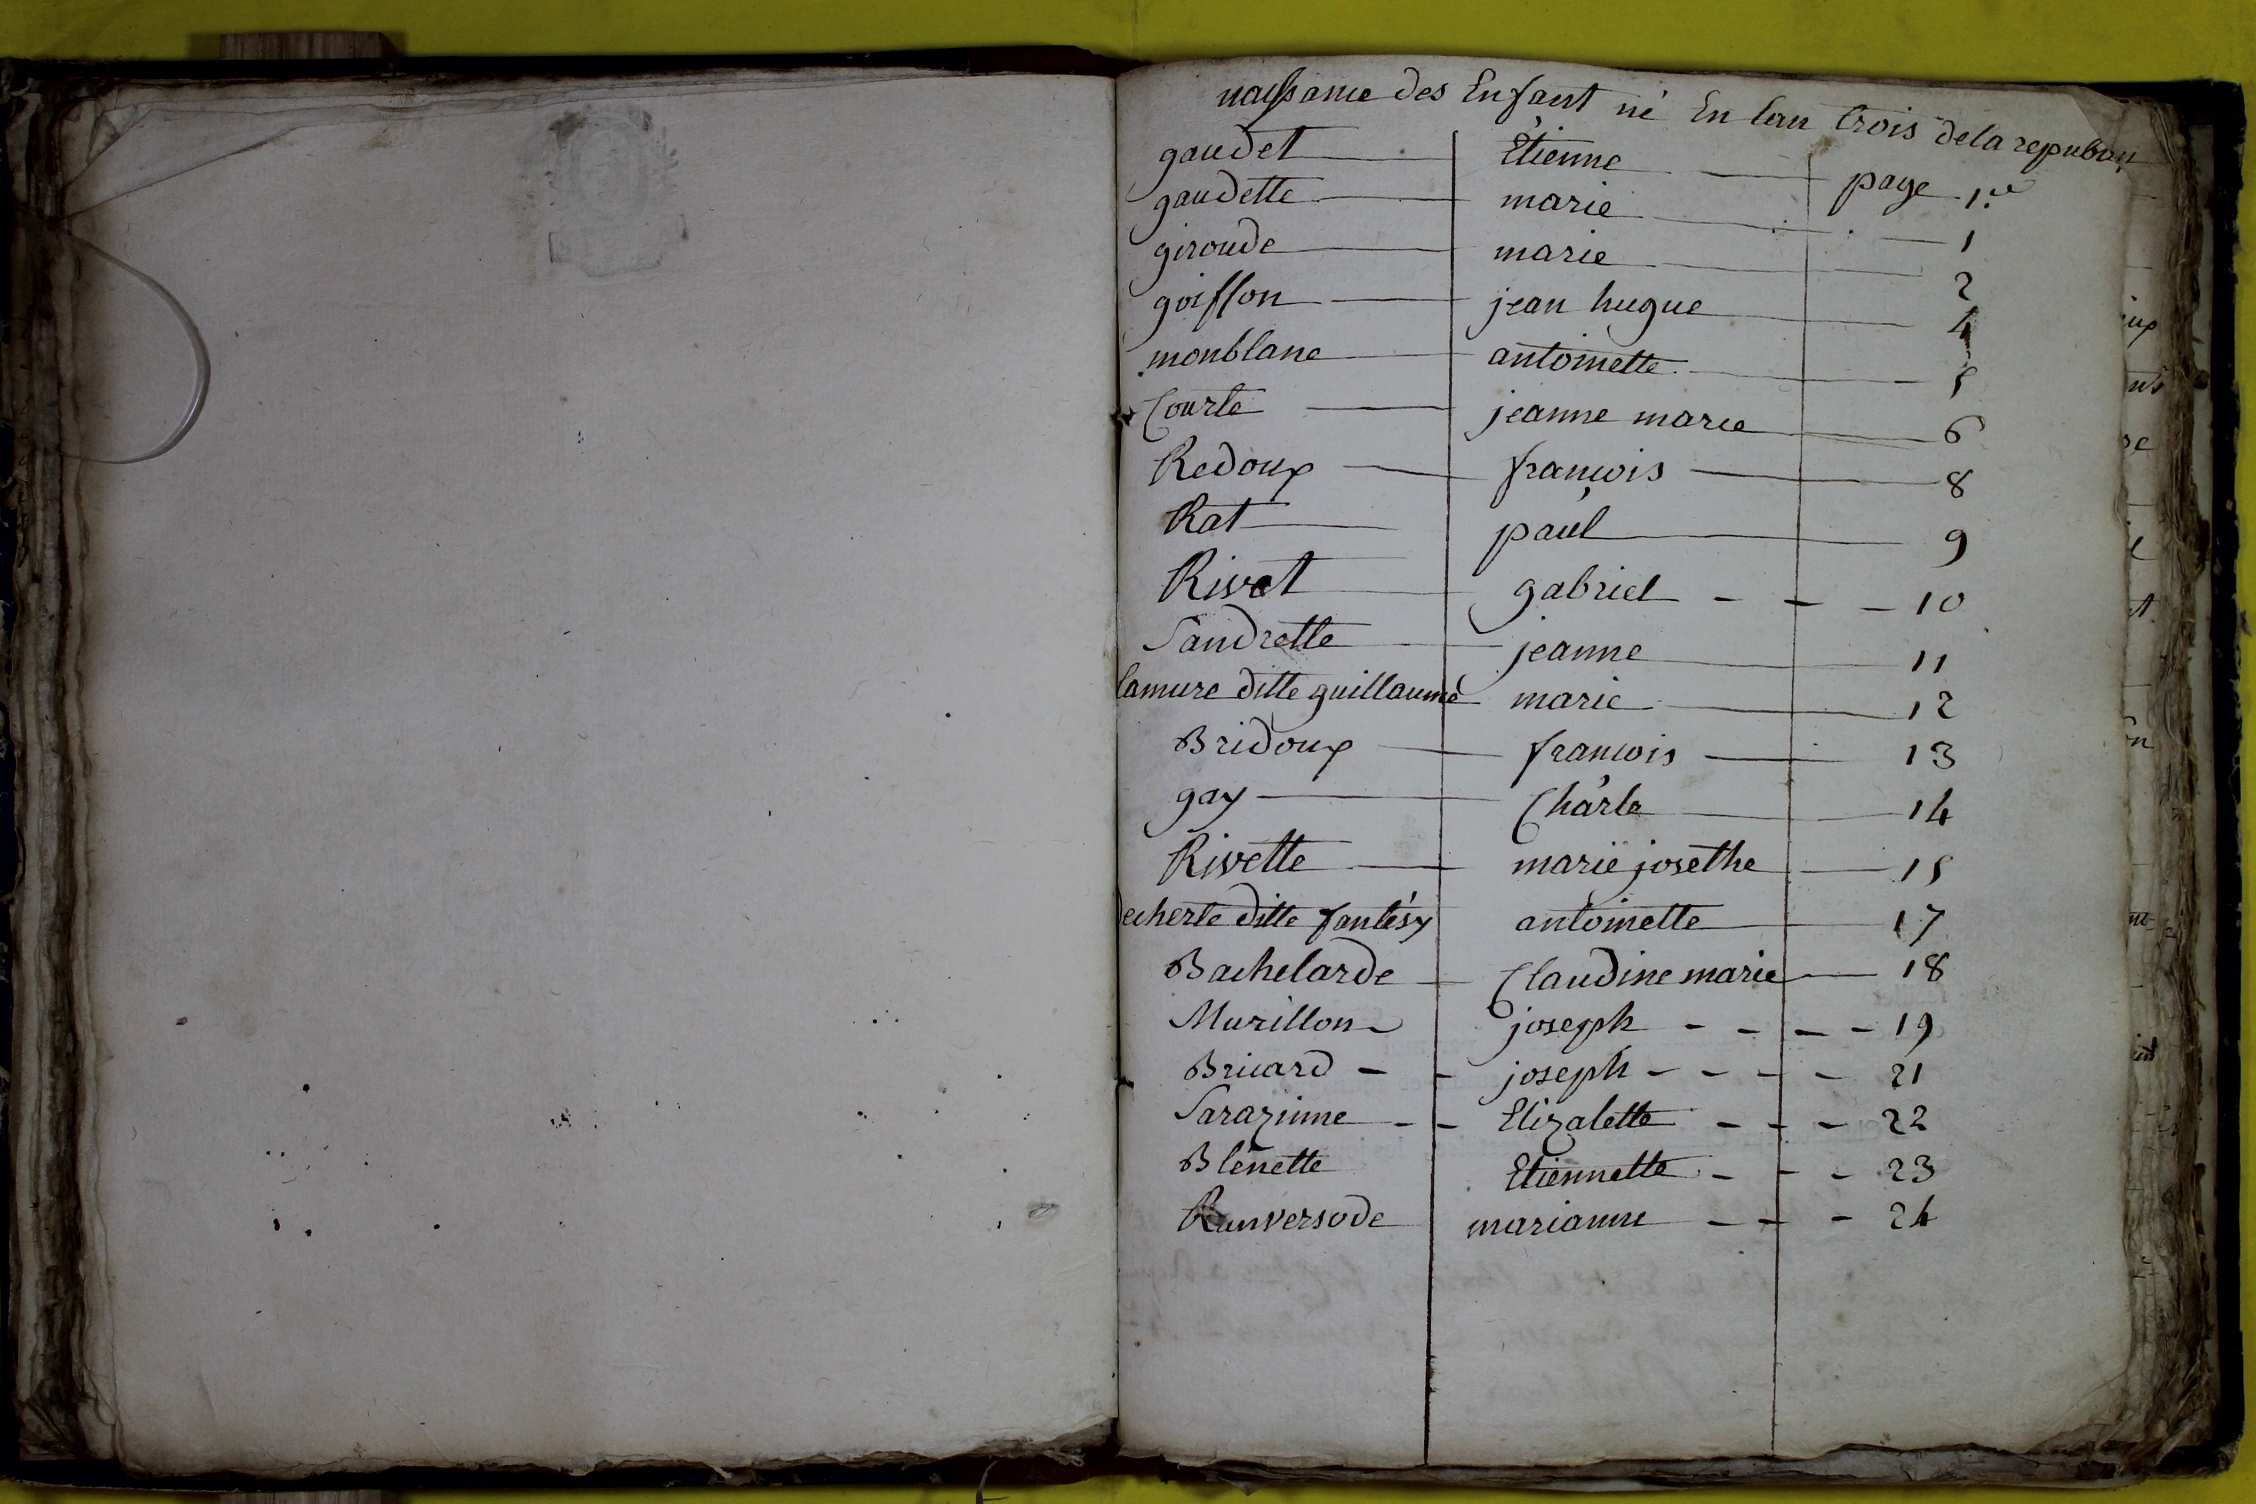 naissance des Enfant né En lan trois de la republique
gaudet Etienne page 1.re
gaudette marie 1
giroude marie 2
goiffon jean hugue 4
monblanc antoinette 5
Courte jeanne marie 6
Redoux françois 8
Rat paul 9
Rivet gabriel 10
Sandrette jeanne 11
lamure ditte guillaume marie 12
Bridoux françois 13
gay Charle 14
Rivette marie josethe 15
decherte ditte fantésy antoinette 17
Bachelarde Claudine marie 18
Murillon joseph 19
Bricard joseph 21
Sarazinne Elizalette 22
Blenette Etiennette 23
Ranversode marianne 24